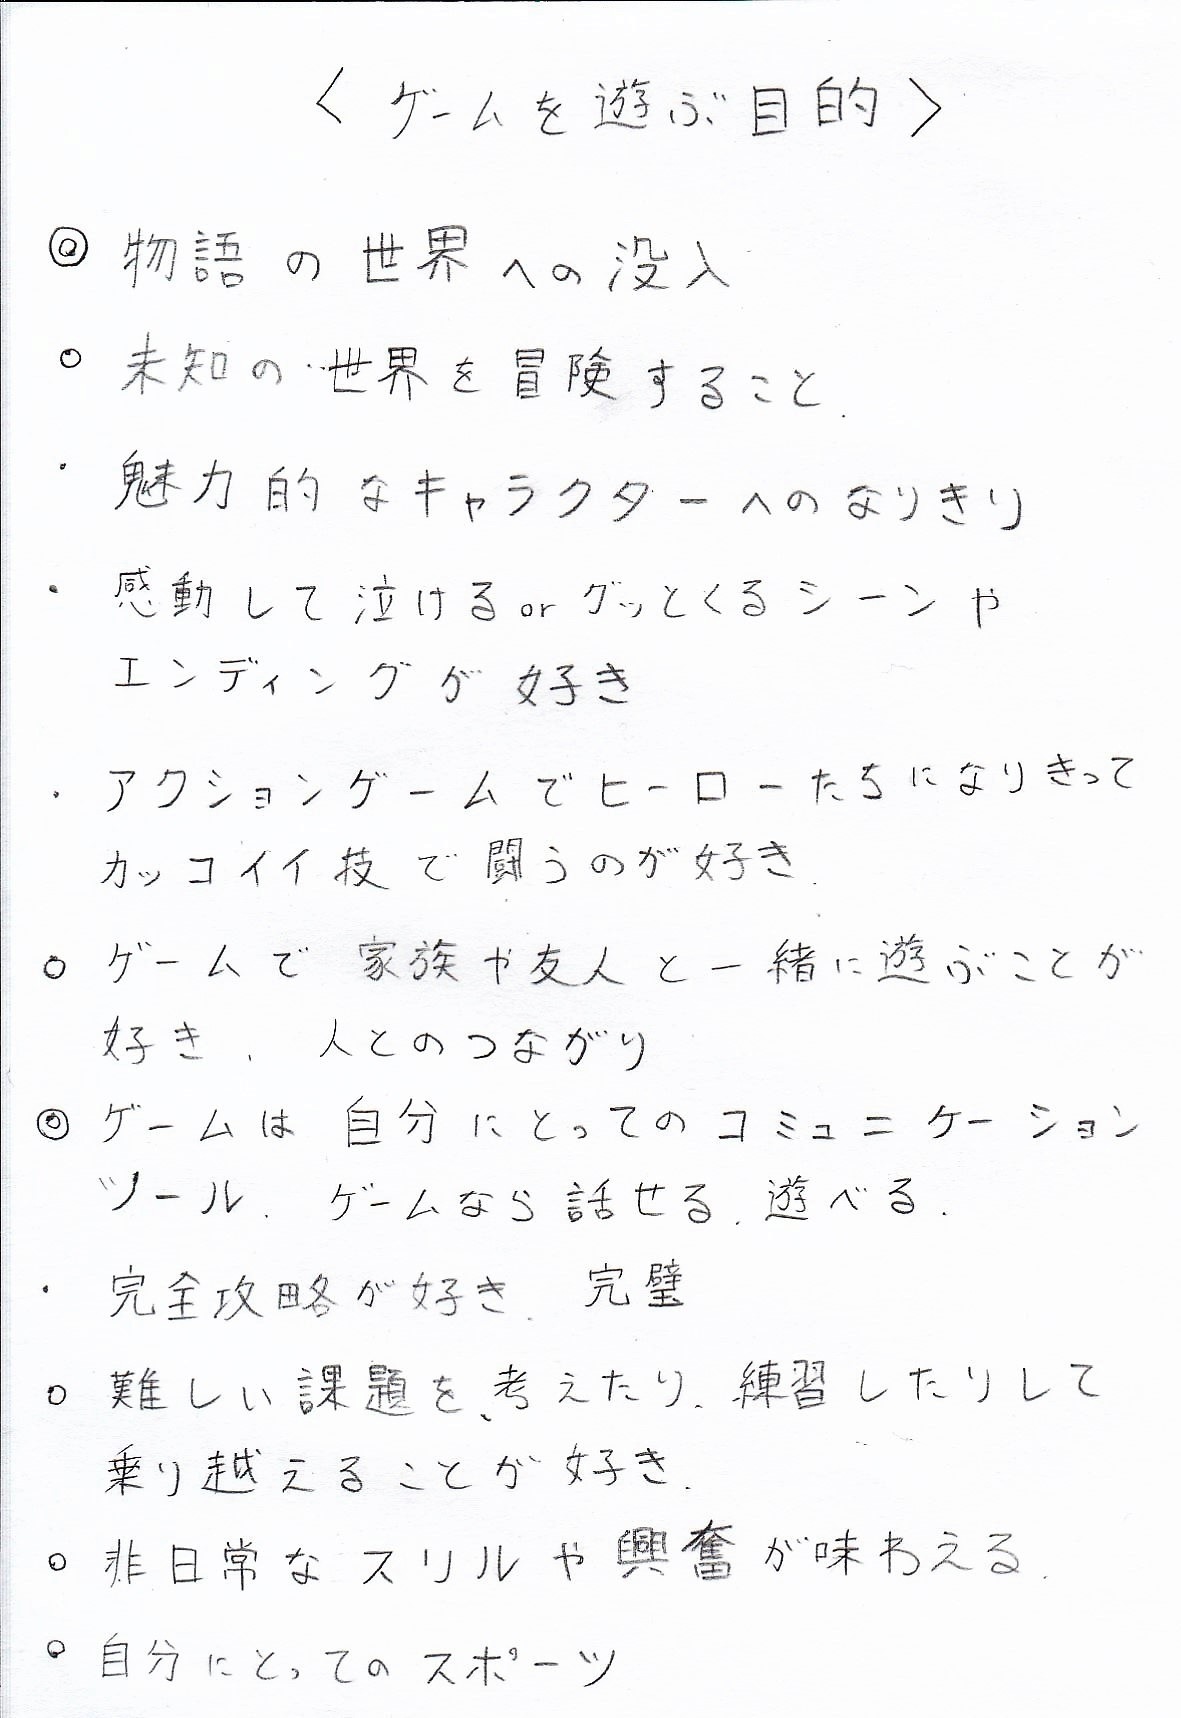 〈ゲームを遊ぶ目的〉
◎ 物語の世界への没入
○ 未知の世界を冒険すること.
・ 魅力的なキャラクターへのなりきり
・ 感動して泣けるorグッとくるシーンや
エンディングが好き
・ アクションゲームでヒーローたちになりきって
カッコイイ技で闘うのが好き.
○ ゲームで家族や友人と一緒に遊ぶことが
好き. 人とのつながり
◎ ゲームは自分にとってのコミュニケーション
ツール. ゲームなら話せる.遊べる.
・ 完全攻略が好き. 完璧
○ 難しい課題を、考えたり.練習したりして
乗り越えることが好き.
○ 非日常なスリルや興奮が味わえる.
○ 自分にとってのスポーツ